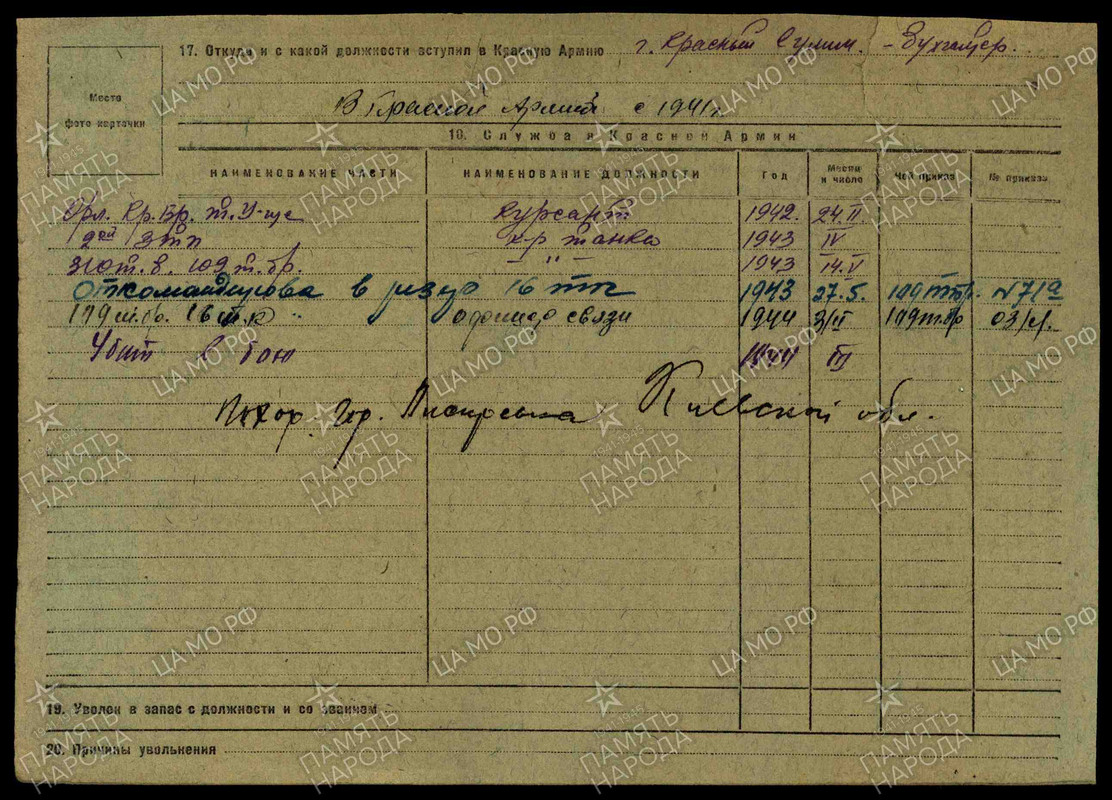 17. Откуда и с какой должности вступил в Красную Армию г. Красный Сулин. - Бухгалтер.
Место
фото карточки
В Красной Армии с 1941 г.
18. Служба в Красной Армии
НАИМЕНОВАНИЕ ЧАСТИ НАИМЕНОВАНИЕ ДОЛЖНОСТИ ГОД Месяц и число Чей приказ № приказа
Орл. Кр. Бр. т. У-ще курсант 1942. 24.II
2ой ЗТП к-р танка 1943 IV
от. б. 109 т. бр. — " — 1943 14.V
откомандирова в резер 16 тк 1943 27.5. 109 тбр. № 71а
109 т. бр. 16 т.к офицер связи 1944 3/II 109 т. бр 03/л.
Убит в бою 1944 III
Похор. Киевской обл.
19. Уволен в запас с должности и со званием
20. Причины увольнения
ЦА МО РФ
1941-1945
ПАМЯТЬ
НАРОДА